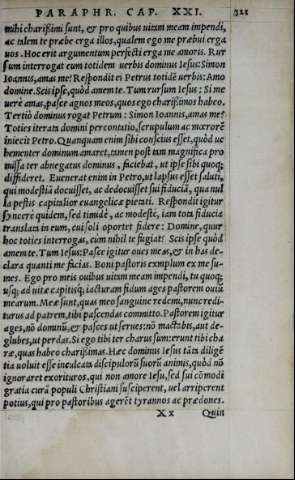 PARAPHR. CAP. XXI. 321
mihi charißimi sunt, & pro quibus uitam meam impendi,
ac talem te præbe erga illos, qualem ego me præbui erga
uos. Hoc erit argumentum perfecti erga me amoris. Rur
sum interrogat eum totidem uerbis dominus Iesus: Simon
Ioannis, amas me? Respondit ei Petrus totidē uerbis: Amo
domine. Scis ipse, quòd amem te. Tum rursum Iesus: Si me
uerè amas, pasce agnos meos, quos ego charißimos habeo.
Tertiò dominus rogat Petrum: Simon Ioannis, amas me?
Toties iterata domini percontatio, scrupulum ac mœrorē
iniecit Petro. Quanquam enim sibi conscius esset, quòd ue
hementer dominum amaret, tamen post tam magnifica pro
missa ter abnegatus dominus, faciebat, ut ipse sibi quoq;
diffideret. Euenerat enim in Petro, ut lapsus esset saluti,
qui modestiā docuisset, ac dedocuisset sui fiduciā, qua nul
la pestis capitalior euangelicæ pietati. Respondit igitur
syncere quidem, sed timidè, ac modestè, iam tota fiducia
translata in eum, cui soli oportet fidere: Domine, quor
hoc toties interrogas, cum nihil te fugiat? Scis ipse quòd
amem te. Tum Iesus: Pasce igitur oues meas, & in has de-
clara quanti me facias. Boni pastoris exemplum ex me su-
mes. Ego pro meis ouibus uitam meam impendi, tu quoq;
usq; ad uitæ capitisq; iacturam fidum ages pastorem ouiū
mearum. Meæ sunt, quas meo sanguine redemi, nunc redi-
turus ad patrem, tibi pascendas committo. Pastorem igitur
ages, nō dominū, & pasces ut serues: nō mactabis, aut de-
glubes, ut perdas. Si ego tibi ter charus sum: erunt tibi cha
ræ, quas habeo charißimas. Hæc dominus Iesus tāta diligē
tia uoluit esse inculcata discipulorū suorū animis, quòd nō
ignoraret exorituros, qui non amore Iesu, sed sui cōmodi
gratia curā populi Christiani susciperent, uel arriperent
potius, qui pro pastoribus agerēt tyrannos ac prædones.
Xx Quin